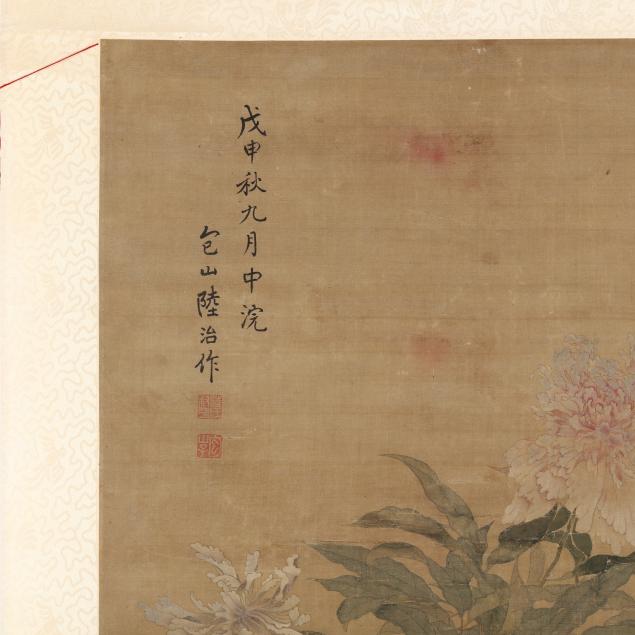 戊申秋九月中浣
包山陸治作